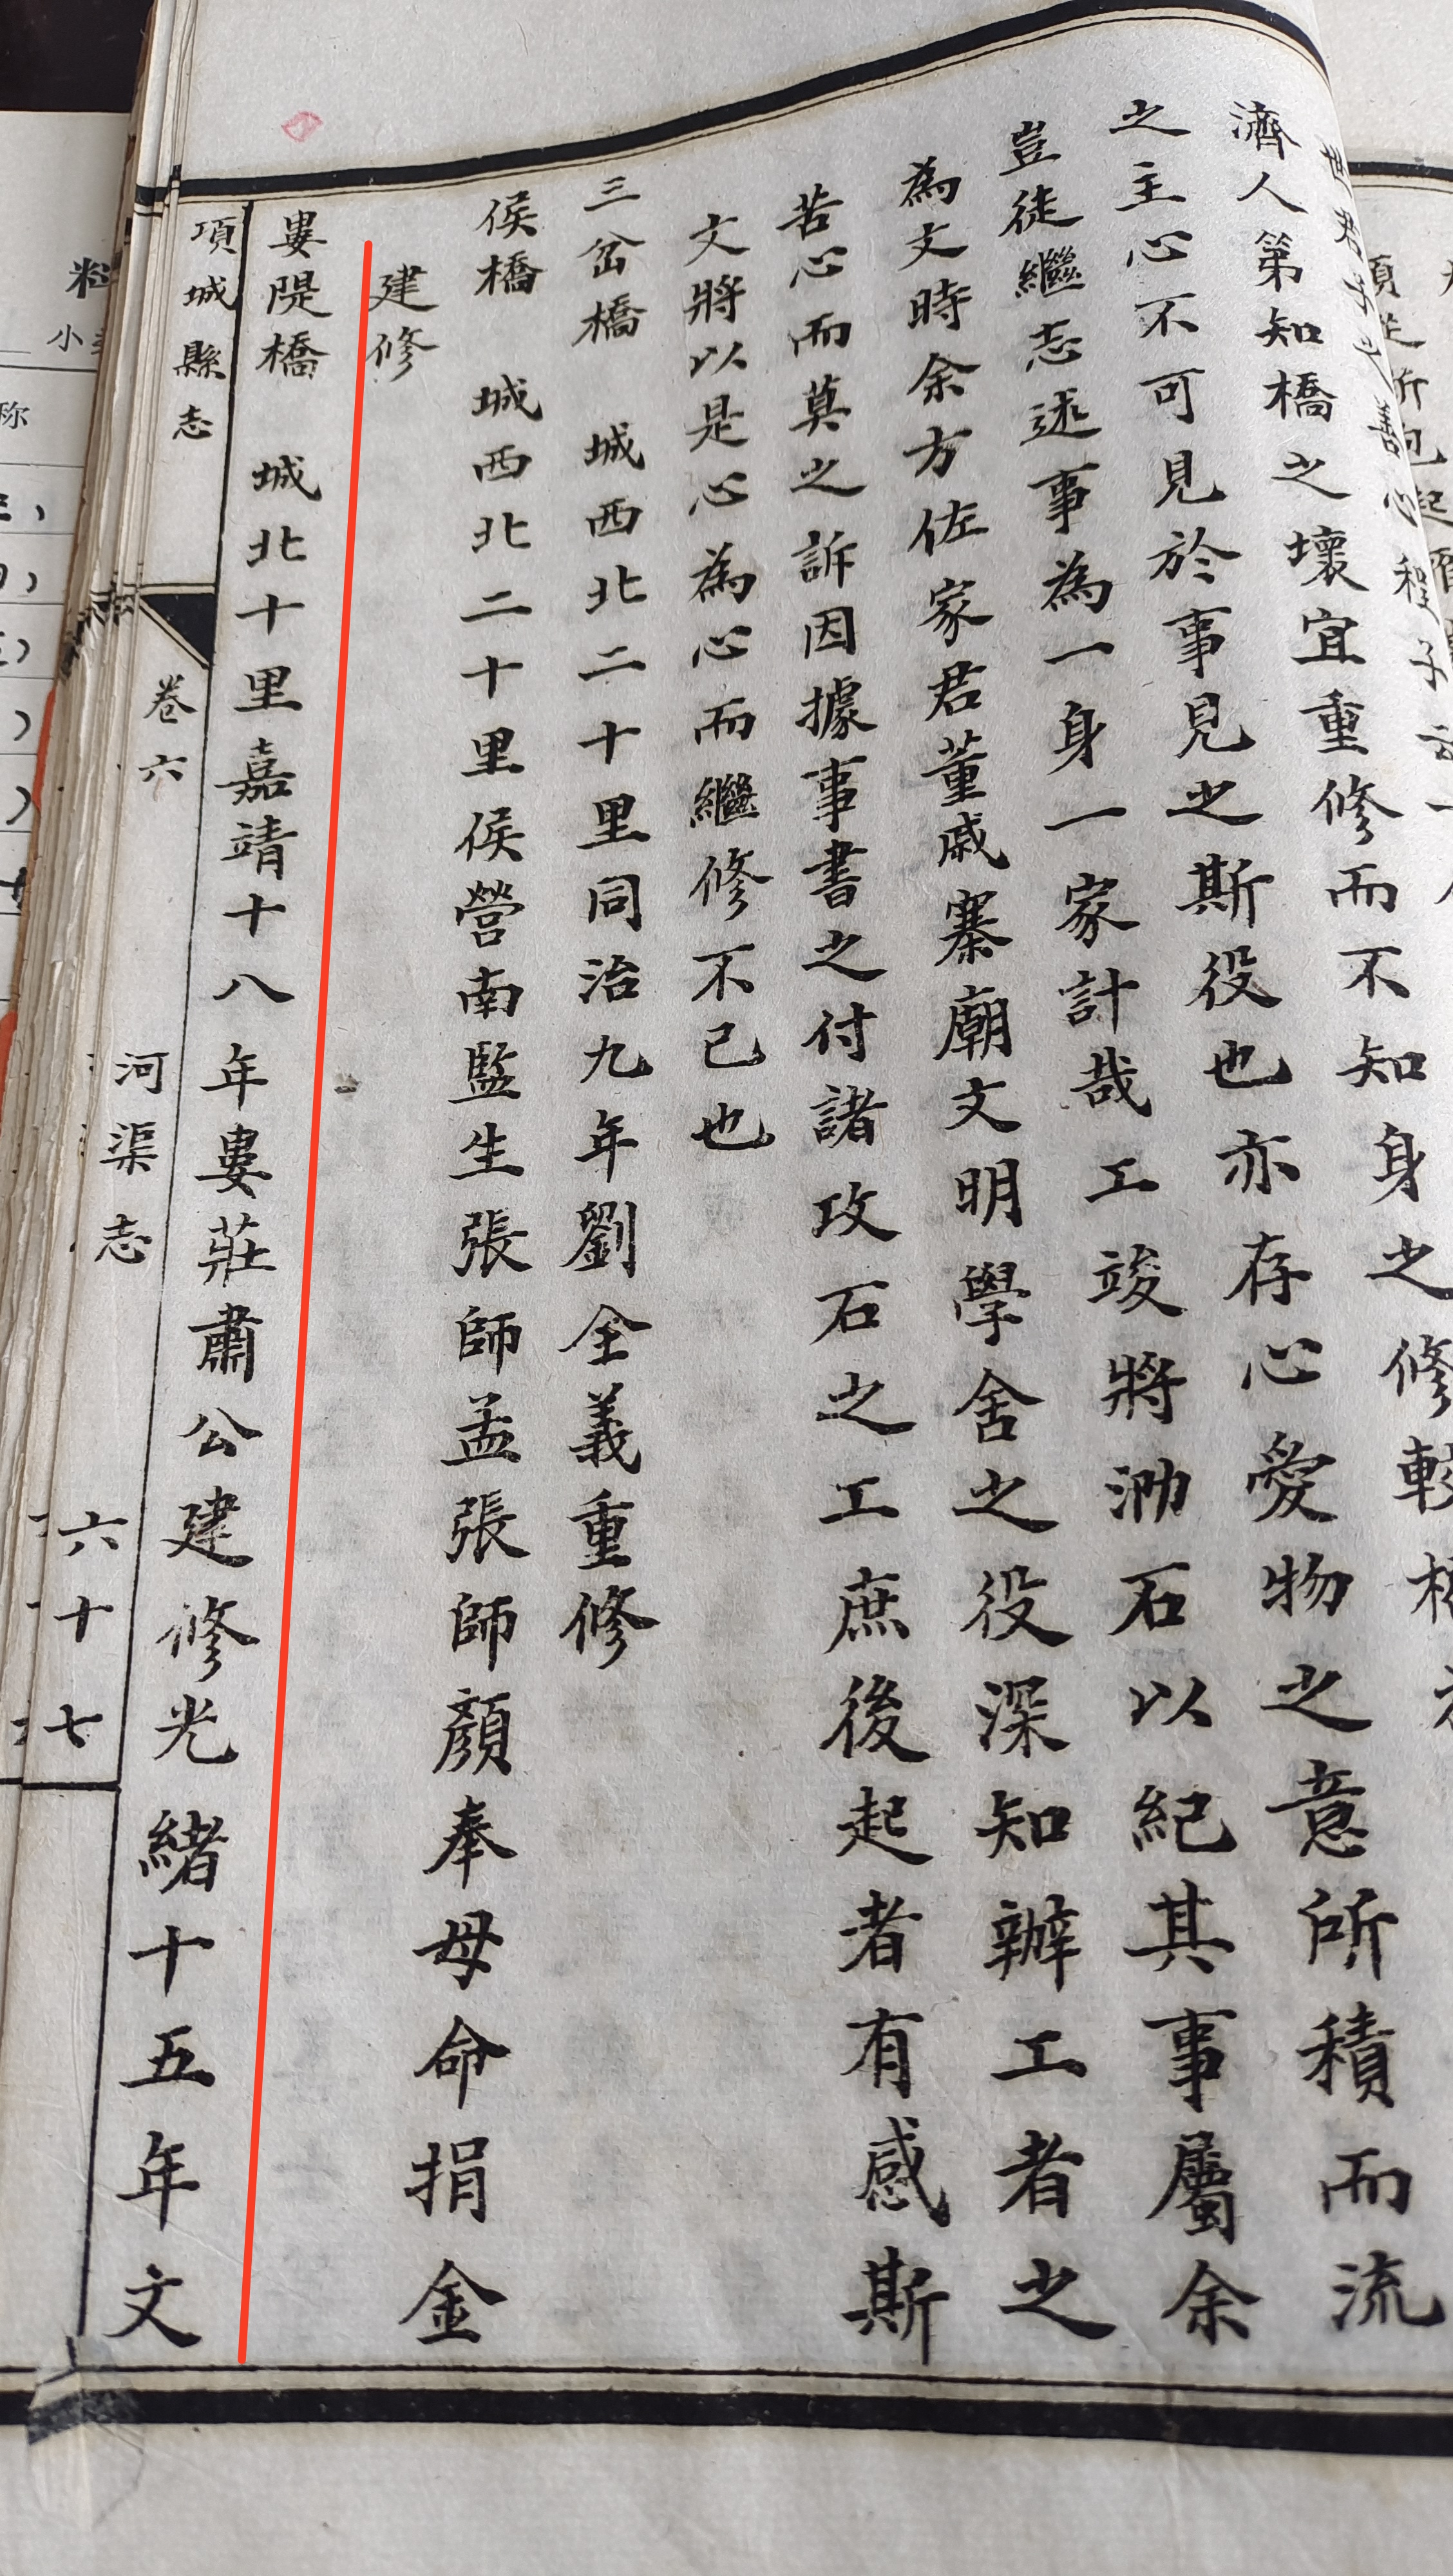 世君子之善心程子云一
濟人第知橋之壞宜重修而不知身之修較橋
之主心不可見於事見之斯役也亦存心愛物之意所積而流
豈徒繼志述事為一身一家計哉工竣將泐石以紀其事屬余
為文時余方佐家君董戚寨廟文明學舍之役深知辦工者之
苦心而莫之訴因據事書之付諸攻石之工庶後起者有感斯
文將以是心為心而繼修不已也
三岔橋 城西北二十里同治九年劉全義重修
侯橋 城西北二十里侯營南監生張師孟張師顏奉母命捐金
建修
婁隄橋 城北十里嘉靖十八年婁莊肅公建修光緒十五年文
項城縣志 卷六 河渠志 六十七